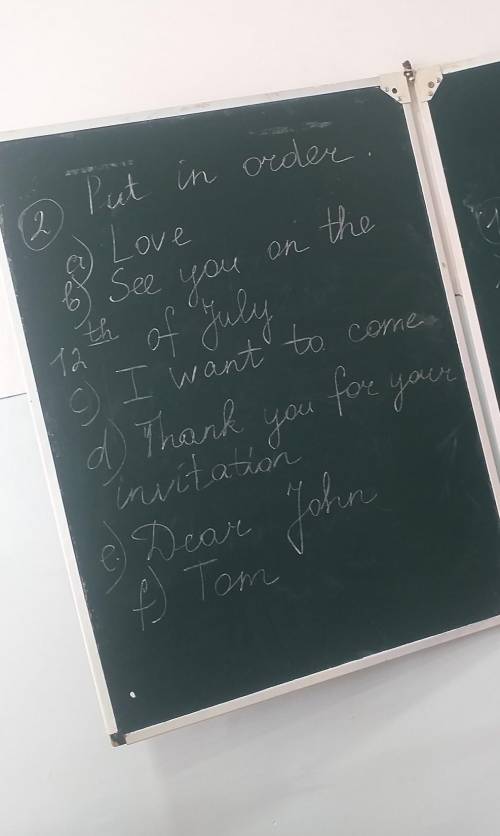 2 Put in order.
a) Love
b) See you on the
12th of July
c) I want to come
d) Thank you for your
invitation
e) Dear John
f) Tom